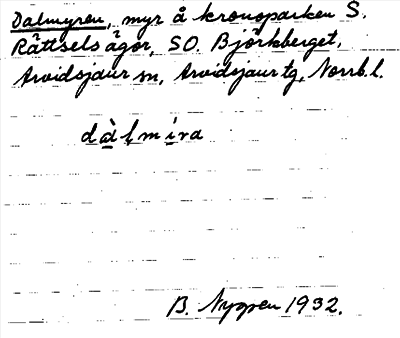 Dalmyren, myr å kronoparken S.
Rättsels ägor, SO. Björkberget,
Arvidsjaur sn, Arvidsjaur tg, Norrb. l.
dàlmira
B. Nygren 1932.